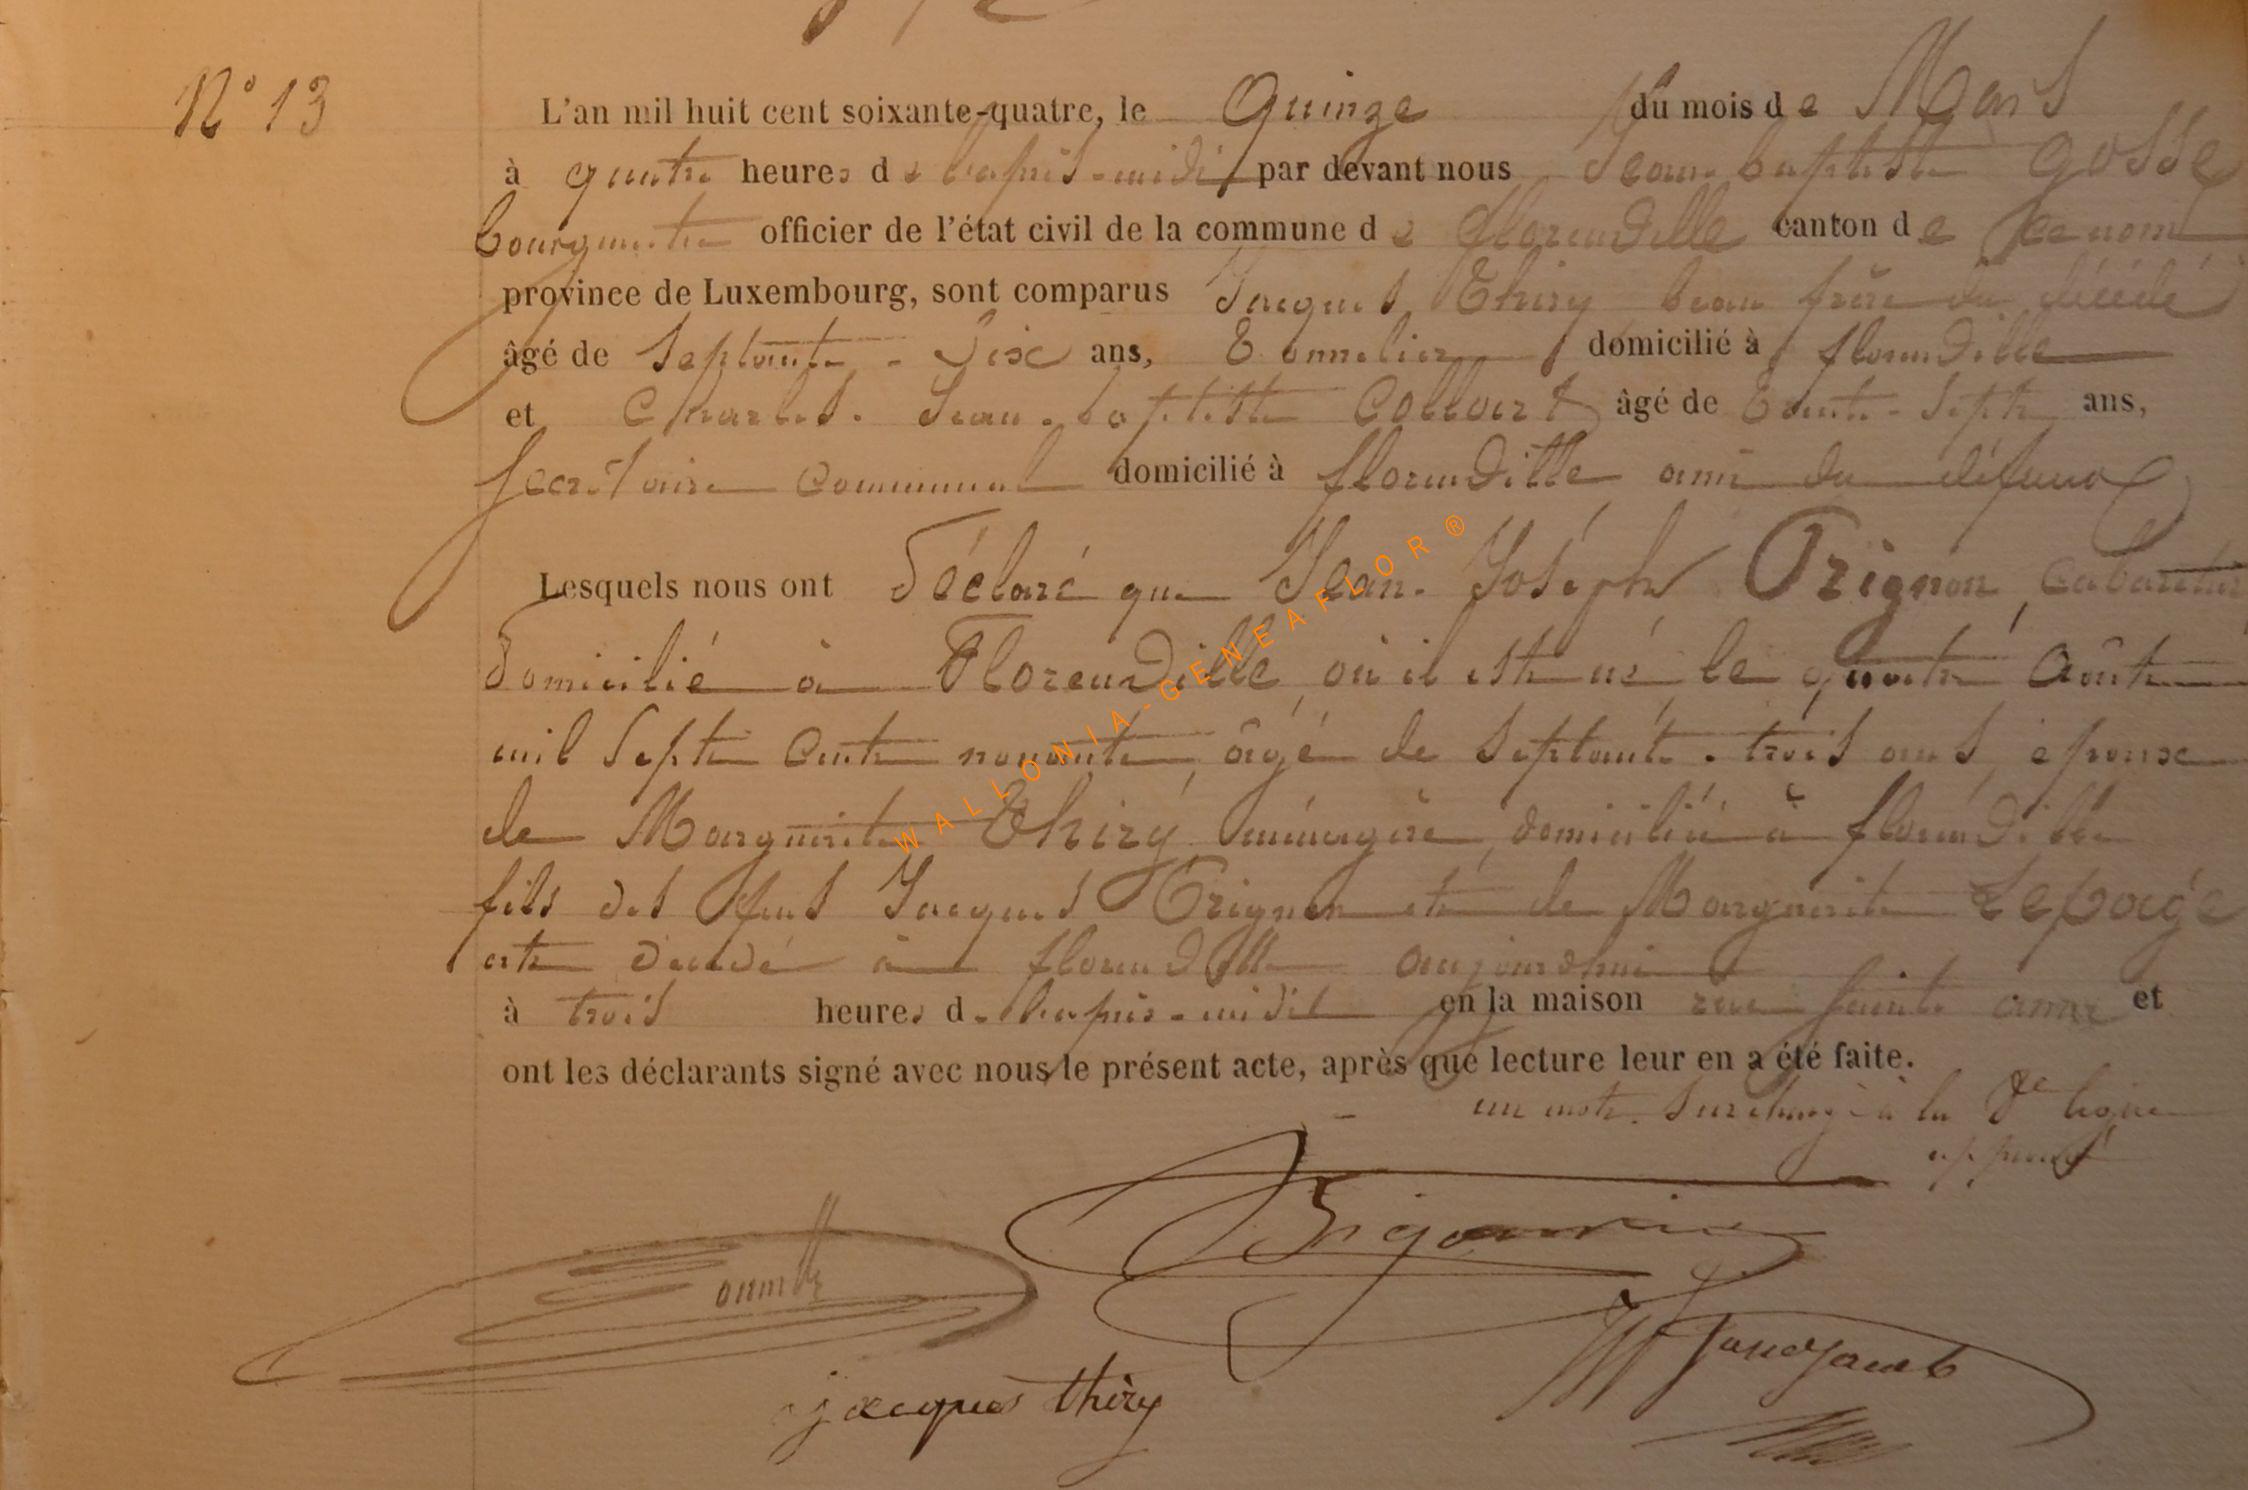 N° 13
L'an mil huit cent soixante-quatre, le Quinze du mois de Mars
à quatre heures de l'après-midi par devant nous Jean baptiste Gosse
bourgmestre officier de l'état civil de la commune de florenville canton de ce nom
province de Luxembourg, sont comparus Jacques Thiry beau frère du décédé
âgé de Septante-dix ans, Tonnelier domicilié à florenville
et Charles. Jean-baptiste Collart âgé de Trente-Sept ans,
Secrétaire Communal domicilié à florenville ami du défunt
Lesquels nous ont déclaré que Jean-Joseph Trignon, Cabaretier
domicilié à Florenville, où il est né le quatre Août
mil Sept Cent nonante, âgé de Septante-trois ans, époux
de Marguerite Thiry, ménagère, domiciliée à florenville
fils des feus Jacques Trignon et de Marguerite Lepage
est décédé à florenville aujourdhui
à trois heures de l'après-midi en la maison rue Sainte anne et
ont les déclarants signé avec nous le présent acte, après que lecture leur en a été faite.
un mot Surchargé à la 8e ligne
approuvé
jacques thiry
WALLONIA-GENEAFLOR®